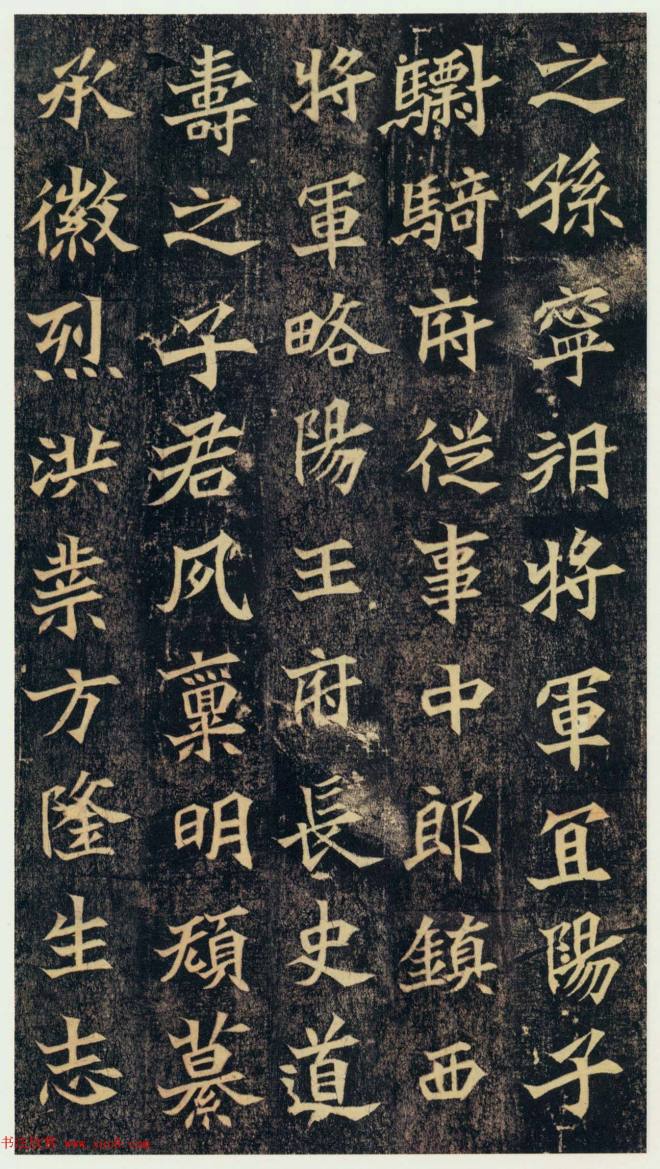 之孫寧朔將軍冝陽子
驃騎府從事中郎鎮西
將軍略陽王府長史道
壽之子君夙稟明頴纂
承徽烈洪業方隆生志
书法欣赏 www.yac8.com